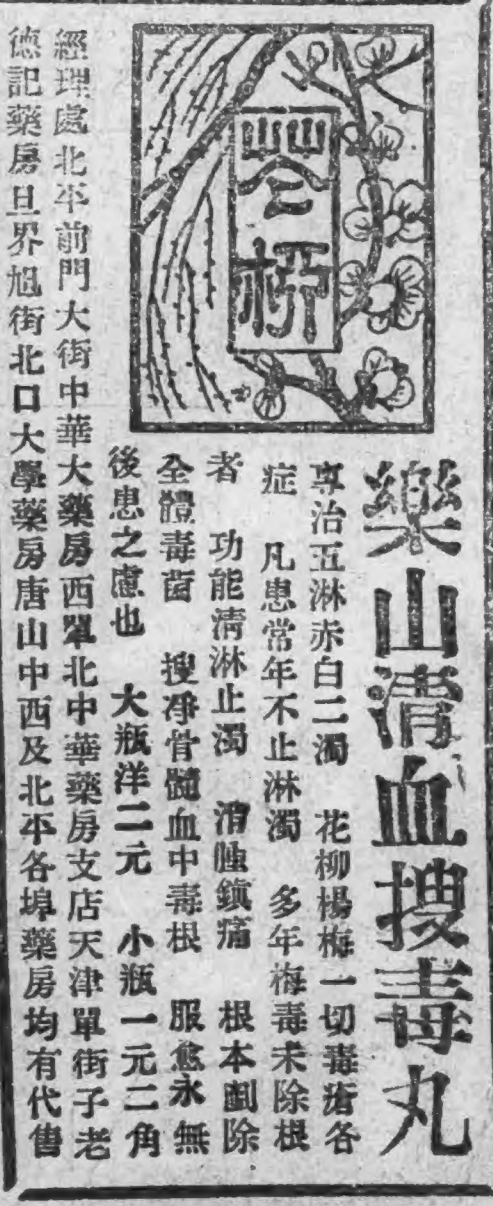 樂山清血搜毒丸
花柳
專治五淋赤白二濁　花柳楊梅一切毒瘡各
症　凡患常年不止淋濁　多年梅毒未除根
者　功能淸淋止濁　消腫鎮痛　根本剷除
全體毒菌　搜凈骨髓血中毒根　服愈永無
後患之慮也　大瓶洋二元　小瓶一元二角
經理處北平前門大街中華大藥房西單北中華藥房支店天津單街子老
德記藥房旦界旭街北口大學藥房唐山中西及北平各埠藥房均有代售